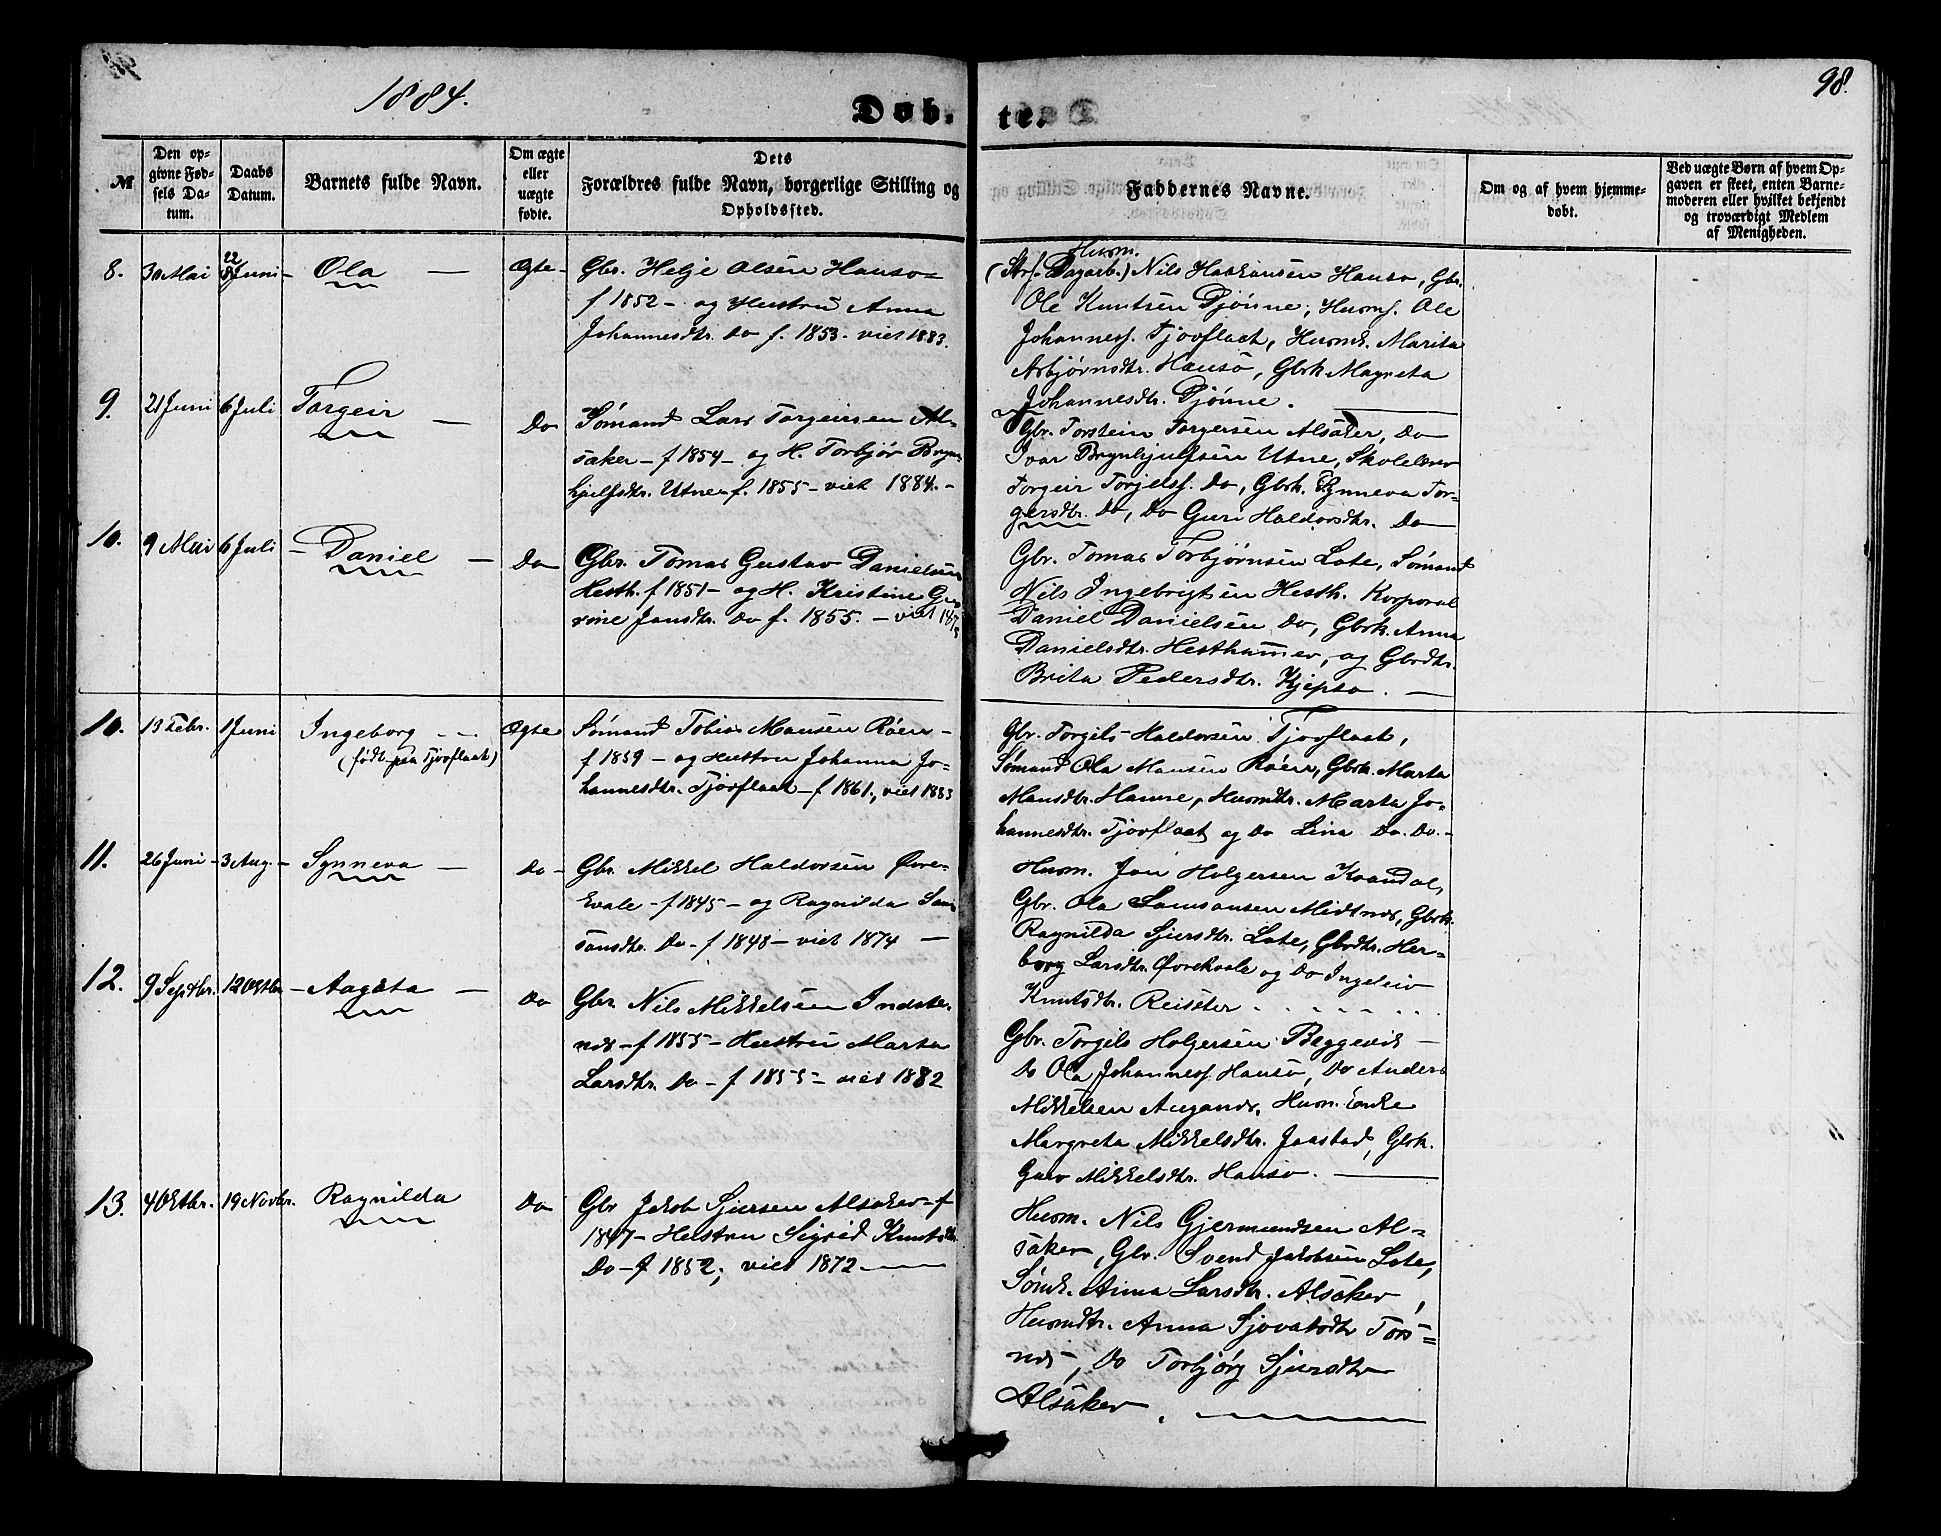 1884.
Døb-
te.
98.
№
Den op-
givne Fød-
sels Da-
tum.
Daabs
Datum.
Barnets fulde Navn.
Om ægte
eller
uægte
fødte.
Dets
Forældres fulde Navn, borgerlige Stilling og
Opholdssted.
Faddernes Navne.
Om og af hvem hjemme-
døbt.
Ved uægte Børn af hvem Op-
gaven er skeet, enten Barne-
moderen eller hvilket bekjendt
og troværdigt Medlem
af Menigheden.
8. 30 Mai 22 Juni - Ola - Ægte -
Gbr. Helje Olsen Hauso -
f 1852 - og Hustru Anna
Johannesdtr. Do f. 1853 - viet 1883.
Husm.
Dagarb.) Nils Haakonsen Hauso, Gbr.
Ole Knutsen Djönne, Husm. Ole
Johannesf. Tjovflaat, Husmk. Marita
Asbjørnsdtr. Hausö, Gbrk Magreta
Johannesdtr. Djönne.
9. 21 Juni 6 Juli Torgeir - Do
Sömand Lars Torgeirsen Al-
saker - f 1854 - og H. Torbjør Bryn-
hjulfsdtr. Utne - f. 1855 - viet 1884. -
Gbr. Torstein Torgersen Alsaker, Do
Ivar Brynhjulfsen Utne, Skolelærer
Torgeir Torjelsf. Do, Gbrk. Synneva Tor-
gersdtr. Do, Do Guri Haldorsdtr. Do
10. 9 Mai 6 Juli - Daniel - Do
Gbr. Tomas Gustav Danielsen
Hesth. f 1851 - og H. Kristine Gu-
rine Jansdtr. Do f. 1855. - viet 1878
Gbr. Tomas Torbjørnsen Lote, Sömand
Nils Ingebrigtsen Hesth. Korporal
Daniel Danielsen Do, Gbrk. Anna
Danielsdtr. Hesthammer, og Gbrdtr.
Brita Pedersdtr. Kjepso. -
10. 13 Febr. 1 Juni Ingeborg - Ægte
(født paa Tjovflaat)
Sömand Tobias Monsen Röen -
f 1859 - og Hustru Johanna Jo-
hannesdtr. Tjovflaat - f 1861., viet 1883
Gbr. Torgils Haldorsen Tjovflaat,
Sömand Ola Monsen Röen, Gbrk. Marta
Monsdtr. Hamre, Husmdtr. Marta Jo-
hannesdtr. Tjovflaat og Do Lina Do. Do. -
11. 26 Juni - 3 Aug. - Synneva - Do -
Gbr. Mikkel Haldorsen Övre-
kvale - f 1845 - og Ragnilda Sam-
sonsdtr. Do - f 1848 - viet 1874 -
Husm. Jon Holgersen Kvandal,
Gbr. Ola Samsonsen Midtnes, Gbrk.
Ragnilda Sjursdtr. Lote, Gbrdtr. Her-
borg Larsdtr. Övrekvale og Do Ingeleiv
Knutsdtr. Reisæter
12. 9 Septbr. 12 Oktbr. - Aagata - Do
Gbr. Nils Mikkelsen Indste-
nes - f 1855 - Hustru Marta
Larsdtr. Do - f 1855 - viet 1882
Gbr. Torgils Holgersen Beggevik -
Do Ola Johannesf. Hauso, Do Anders
Mikkelsen Augands, Husm. Enke
Margreta Mikkelsdtr. Jaastad, Gbrk.
Guro Mikkelsdtr. Hauso.
13. 4 Oktbr. 19 Novbr. Ragnilda Do
Gbr Jakob Sjursen Alsaker - f
1847 - Hustru Sigrid Knutsdtr.
Do - f 1852; viet 1872
Husm. Nils Gjermundsen Al-
saker, Gbr. Svend Jakobsen Lote,
Sömk. Anna Larsdtr. Alsaker,
Husmdtr. Anna Sjovatsdtr Tors-
nes, Do Torbjörg Sjursdtr
Alsaker.